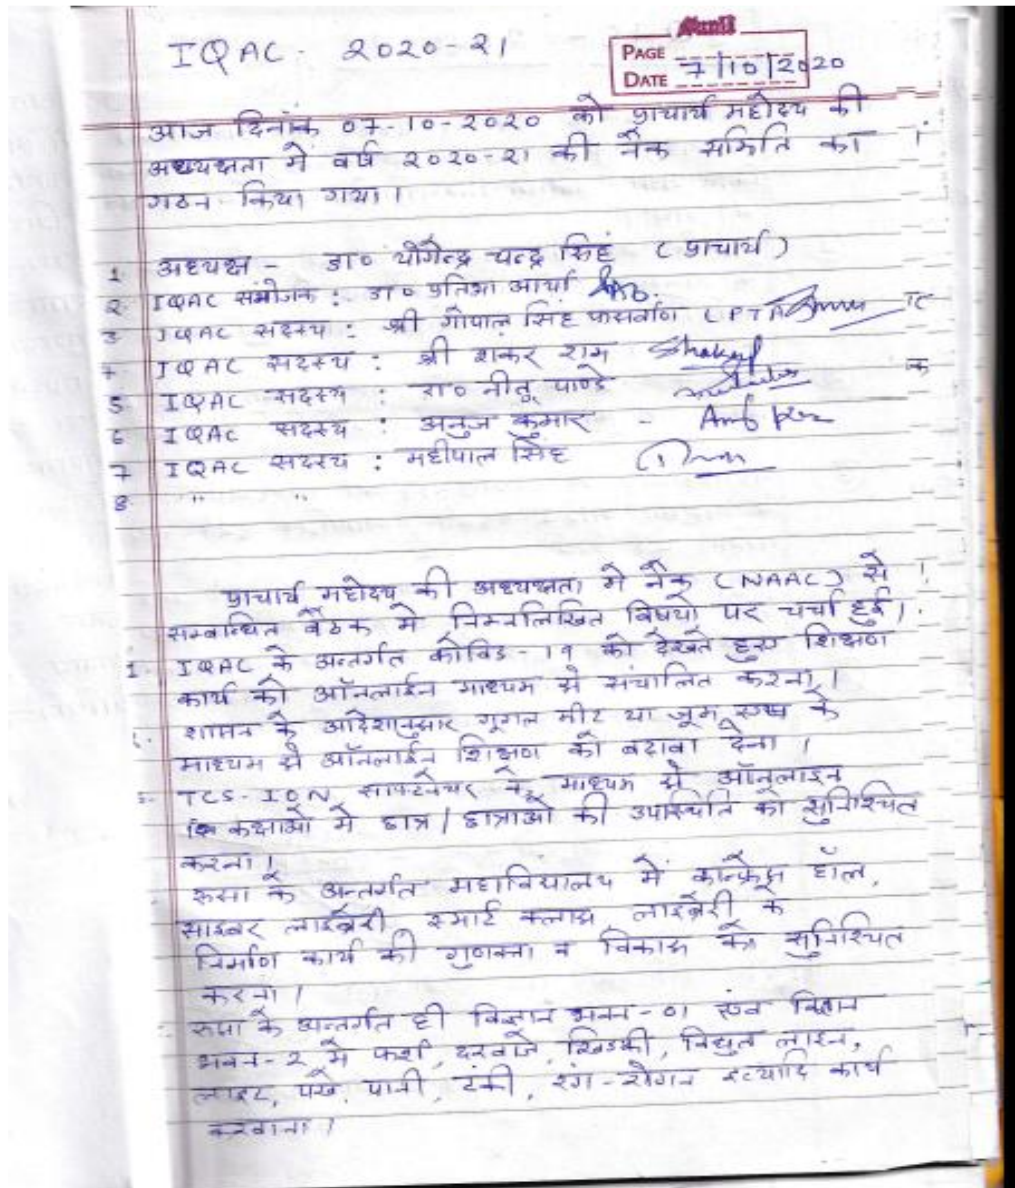 IQAC - 2020-21
PAGE
DATE 7/10/2020
आज दिनांक 07-10-2020 को प्राचार्य महोदय की
अध्यक्षता में वर्ष 2020-21 की नैक समिति का
गठन किया गया।
1 अध्यक्ष - डा० योगेन्द्र चन्द्र सिंह (प्राचार्य)
2. IQAC संयोजक : डा०
3 IQAC सदस्य : श्री गोपाल सिंह (PTA
IQAC सदस्य : श्री शंकर राम
5. IQAC सदस्य : डा० नीतू पाण्डे
6 IQAC सदस्य : अनुज कुमार -
7 IQAC सदस्य : महीपाल सिंह
8. " "
प्राचार्य महोदय की अध्यक्षता मे नैक (NAAC) से
सम्बन्धित बैठक मे निम्नलिखित विषयो पर चर्चा हुई।
1. IQAC के अन्तर्गत कोविड-19 को देखते हुए शिक्षण
कार्य को ऑनलाईन माध्यम से संचालित करना।
शासन के आदेशानुसार गूगल मीट या जूम एप्प के
माध्यम से ऑनलाईन शिक्षण को बढावा देना।
TCS-ION साफ्टवेयर के माध्यम से ऑनलाइन
कक्षाओ मे छात्र/छात्राओ की उपस्थिति को सुनिश्चित
करना।
रूसा के अन्तर्गत महाविद्यालय में कान्फ्रेंस हॉल,
साइबर लाईब्रेरी, स्मार्ट क्लास, लाईब्रेरी के
निर्माण कार्य की गुणवत्ता व विकास को सुनिश्चित
करना।
रूसा के अन्तर्गत ही विज्ञान भवन-01 एंव विज्ञान
भवन-2 मे फर्श, दरवाजे, खिडकी, विद्युत लाइन,
लाइट, पंखे, पानी, टंकी, रंग-रोगन इत्यादि कार्य
करवाना।